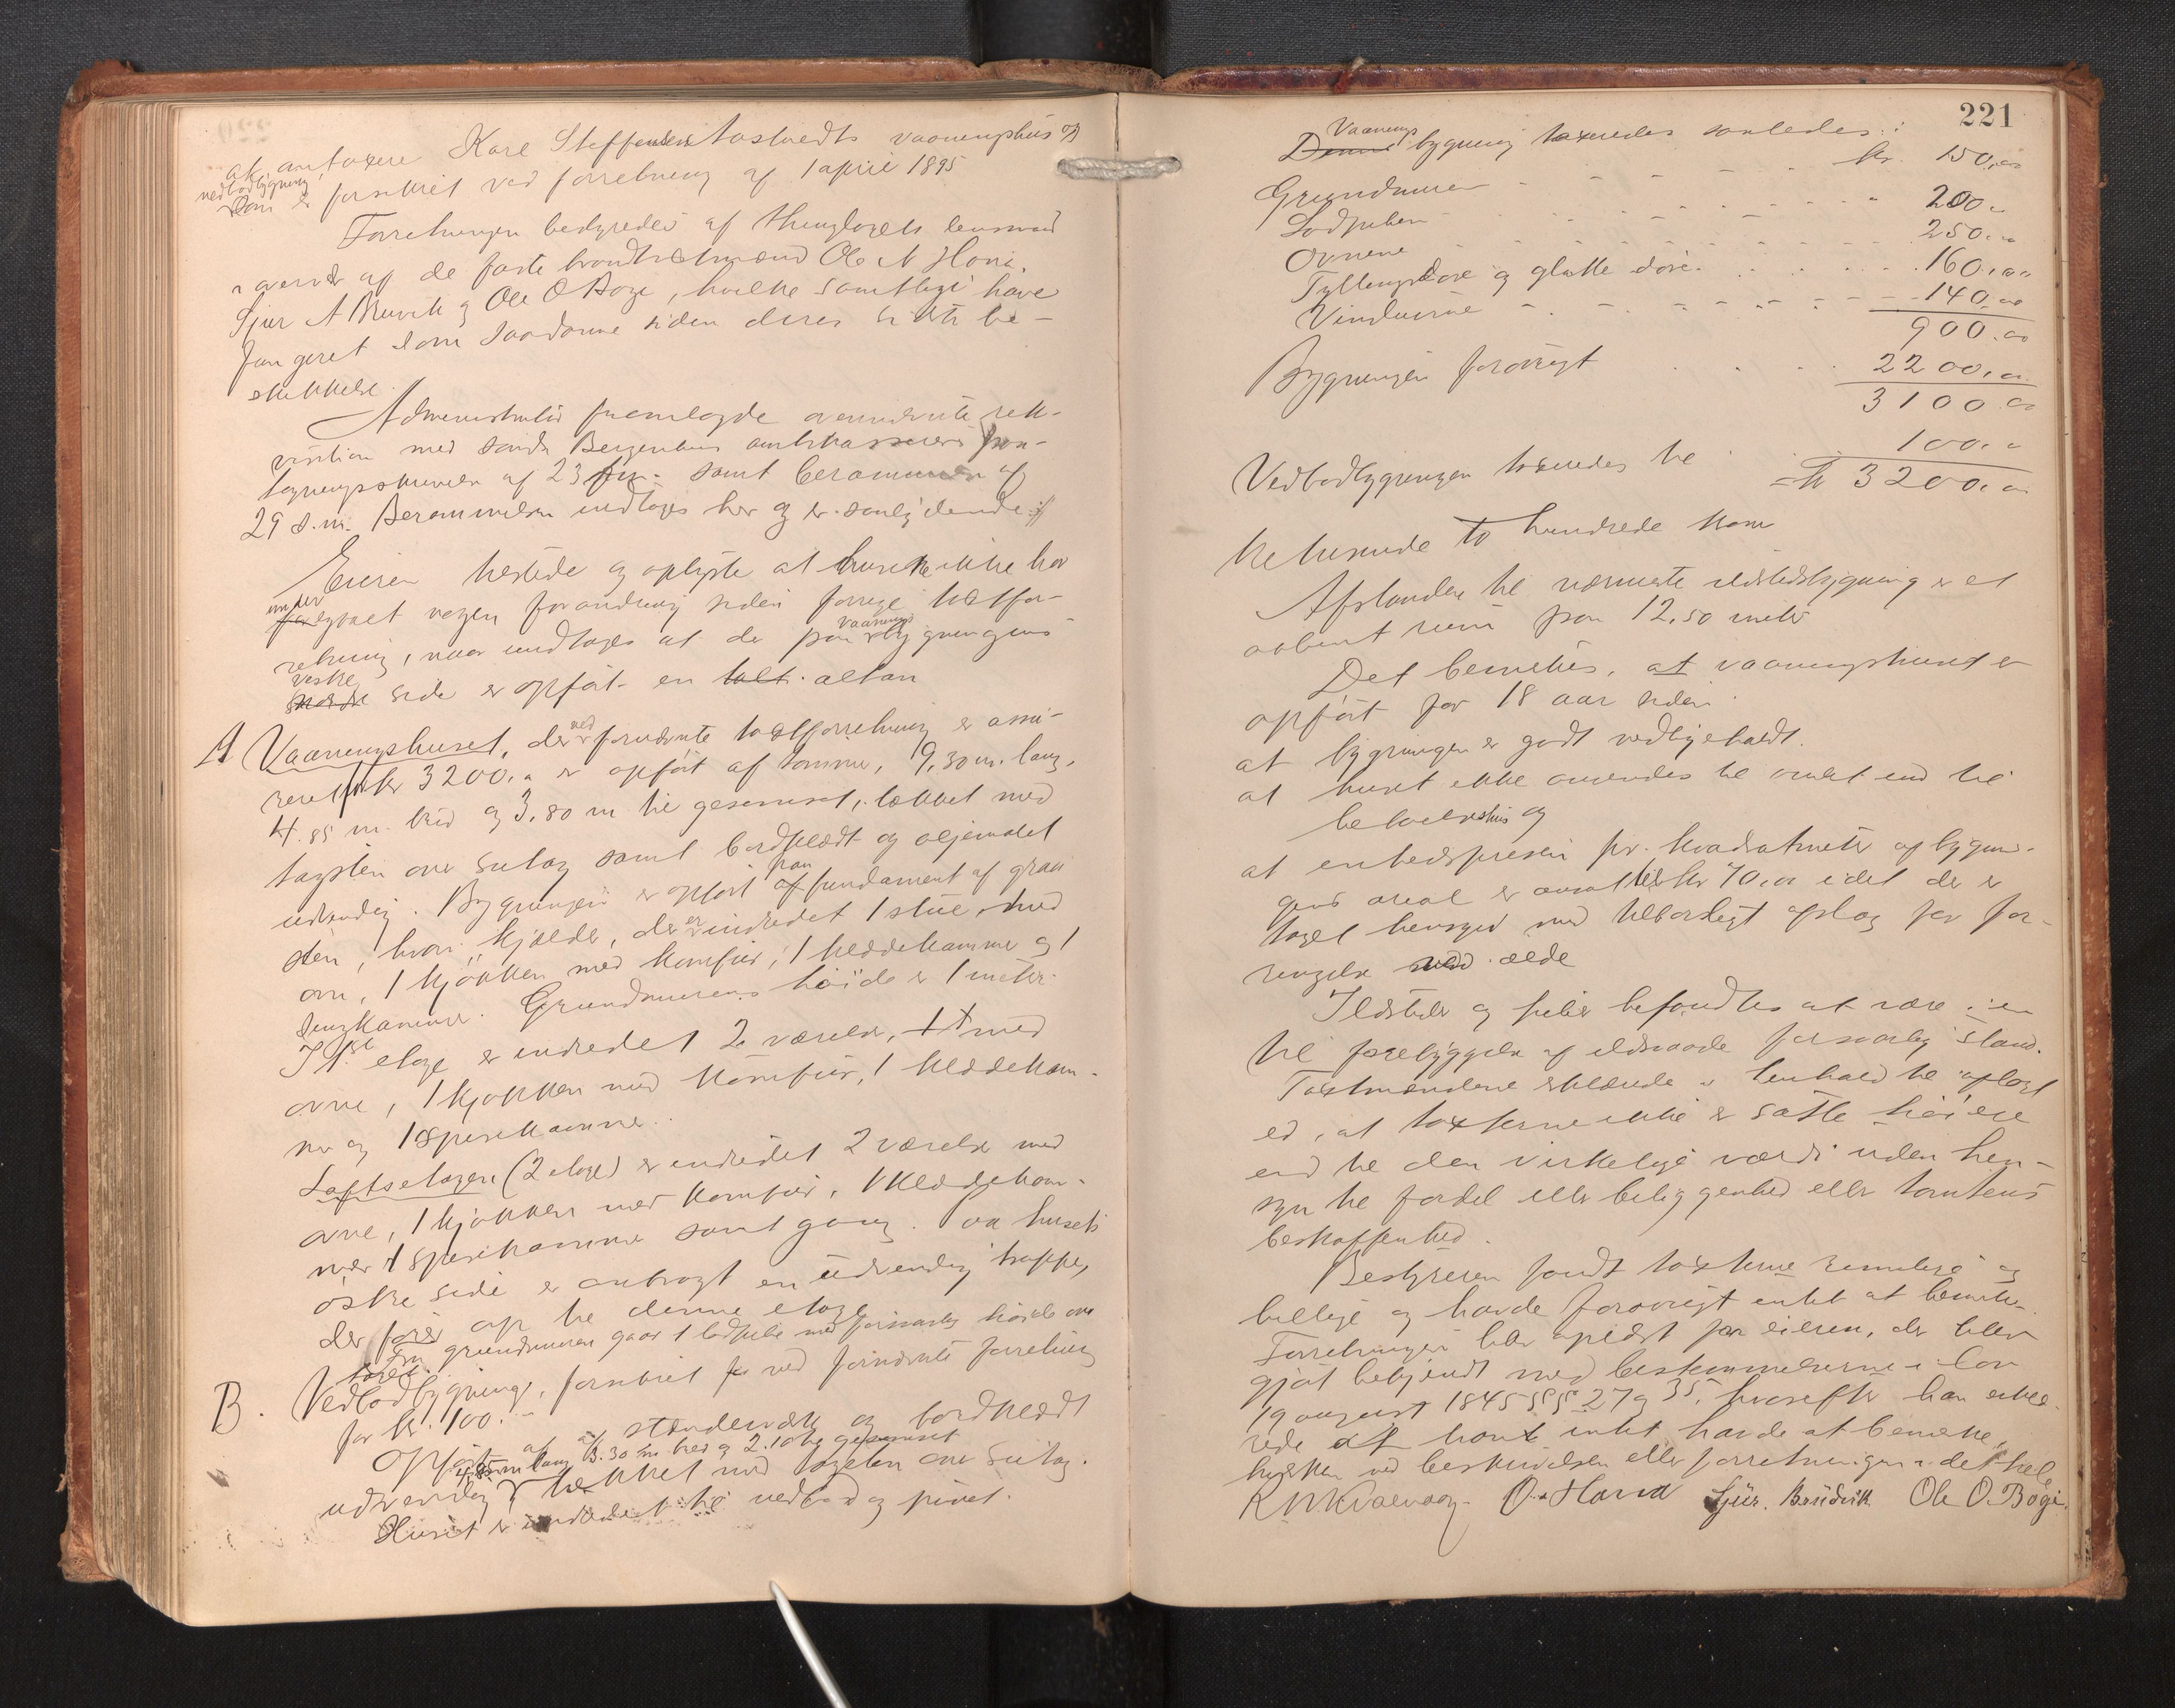 at, antaxere Karl Steffensen Aastvedts vaaningshus og
vedbodbygning
som er forsikret ved forretning af 1 april 1895
Forretningen bestyredes af thinglagets lensmand
overvær af de faste brandtakstmænd Ole N Hana,
Sjur A Bruvik og Ole O Bøge, hvilke samtlige have
fungeret som saadanne siden deres sidste be-
skikkelse.
Administrator fremlagde ovennævnte rek-
visition med søndre Bergenhus amtskasserers paa-
tegningsskrivelse af 23 samt berammelse af
29 s.m. Berammelsen indtages her og er saalydende
Eieren tilstede og oplyste at husene ikke har
under
gaaet nogen forandring siden forrige takstfor-
retning, naar undtages at der paa vaanings bygningens
vestre
søndre side er opført en altan
A Vaaningshuset, der ved forrnævnte takstforretning er assu-
reret for kr 3200.00 er opført af tømmer, 9,30 m. lang,
4.85 m. bred og 3,80 m til gesimset, tækket med
tagsten over sutag samt bordklædt og oljemalet
udvendig. Bygningen er opført paa af fundament af graa
sten, hvori kjælder, der er indredet 1 stue med
ovn, 1 kjøkken med komfur, 1 klædekammer og 1
sengkammer. Grundmurens høide er 1 meter.
I 1st etage er indredet 2 værelser, med
ovne, 1 kjøkken med komfur, 1 klædekam-
mer og 1 spisekammer.
Loftsetagen (2 etage) er indredet 2 værelser med
ovne, 1 kjøkken med komfur, 1 klædekam-
mer 1 spisekammer samt gang. Paa husets
østre side er anbragt en udvendig trappe,
der fører op til denne etage
Fra grundmuren gaar 1 lodpibe med forsvarlig høide over
taget.
B. Vedbodbygning, forsikret for ved forrnævnte forretning
for kr. 100.-
Opført af stenderværk og bordklædt
4.85 m lang 3.30 m bred og 2.10 til gesimset
udvendig tækket med tagsten over sutag.
Huset er indredet til vedbod og privet.
221
Vaanings
Denne bygning taxeredes saaledes:
Grundmuren kr. 150,00
Lodpiben 200.-
Ovnene 250.00
Fyllingsdøre og glatte døre 160.00
Vinduerne 140.00
900.00
Bygningen forøvrigt 2200.00
3100.00
Vedbodbygningen taxeredes til 100.00
kr 3200.00
tretusinde to hundrede kroner
Afstanden til nærmeste ildstedsbygning er et
aabent rum paa 12,50 meter
Det bemerkes, at vaaningshuset er
opført for 18 aar siden
at bygningen er godt vedligeholdt.
at huset ikke anvendes til andet end til
beboelseshus og
at enhedsprisen pr. kvadratmeter af bygnin-
gens areal er ansat til kr 70,00 idet der er
taget hensyn med tilbørligt afslag for for-
ringelse ved ælde
Ildsteder og piber befandtes at være i en
til forebyggelse af ildsvaade forsvarlig stand.
Taxtmændene erklærede i henhold til aflagt
ed, at taxterne ikke er satte høiere
end til den virkelige værdi uden hen-
syn til fordel eller beliggenhed eller tomtens
beskaffenhed.
Bestyreren fandt taxterne rimelige og
billige og havde forøvrigt intet at bemerke.
Forretningen blev oplæst for eieren, der blev
gjort bekjendt med bestemmelserne i lov
19 august 1845 §§ 27 og 35, hvorefter han erklæ-
rede at han intet havde at bemerke,
hverken ved beskrivelsen eller forretningen i det hele
O. Hana Sjur. Bruvik Ole O. Bøge.